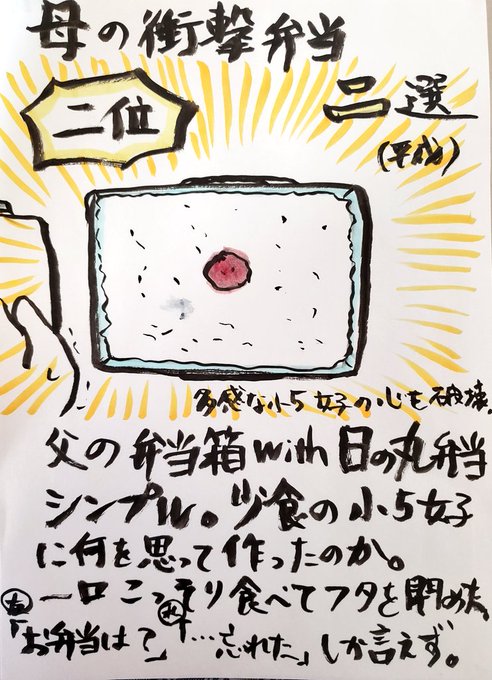 母の衝撃弁当
選
二位
(平成)
多感な小5女子の心を破壊。
父の弁当箱with日の丸弁当
シンプル。少食の小5女子
に何を思って作ったのか。
一口こっそり食べてフタを閉めた。
友「お弁当は?」私「…忘れた」しか言えず。